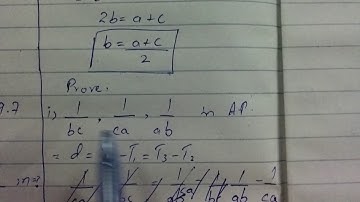 2b = a+c
b = a+c/2
Prove.
9.7 i) 1/bc , 1/ca , 1/ab in AP.
= d = - T₁ = T₃ - T₂
1/ab 1/ca